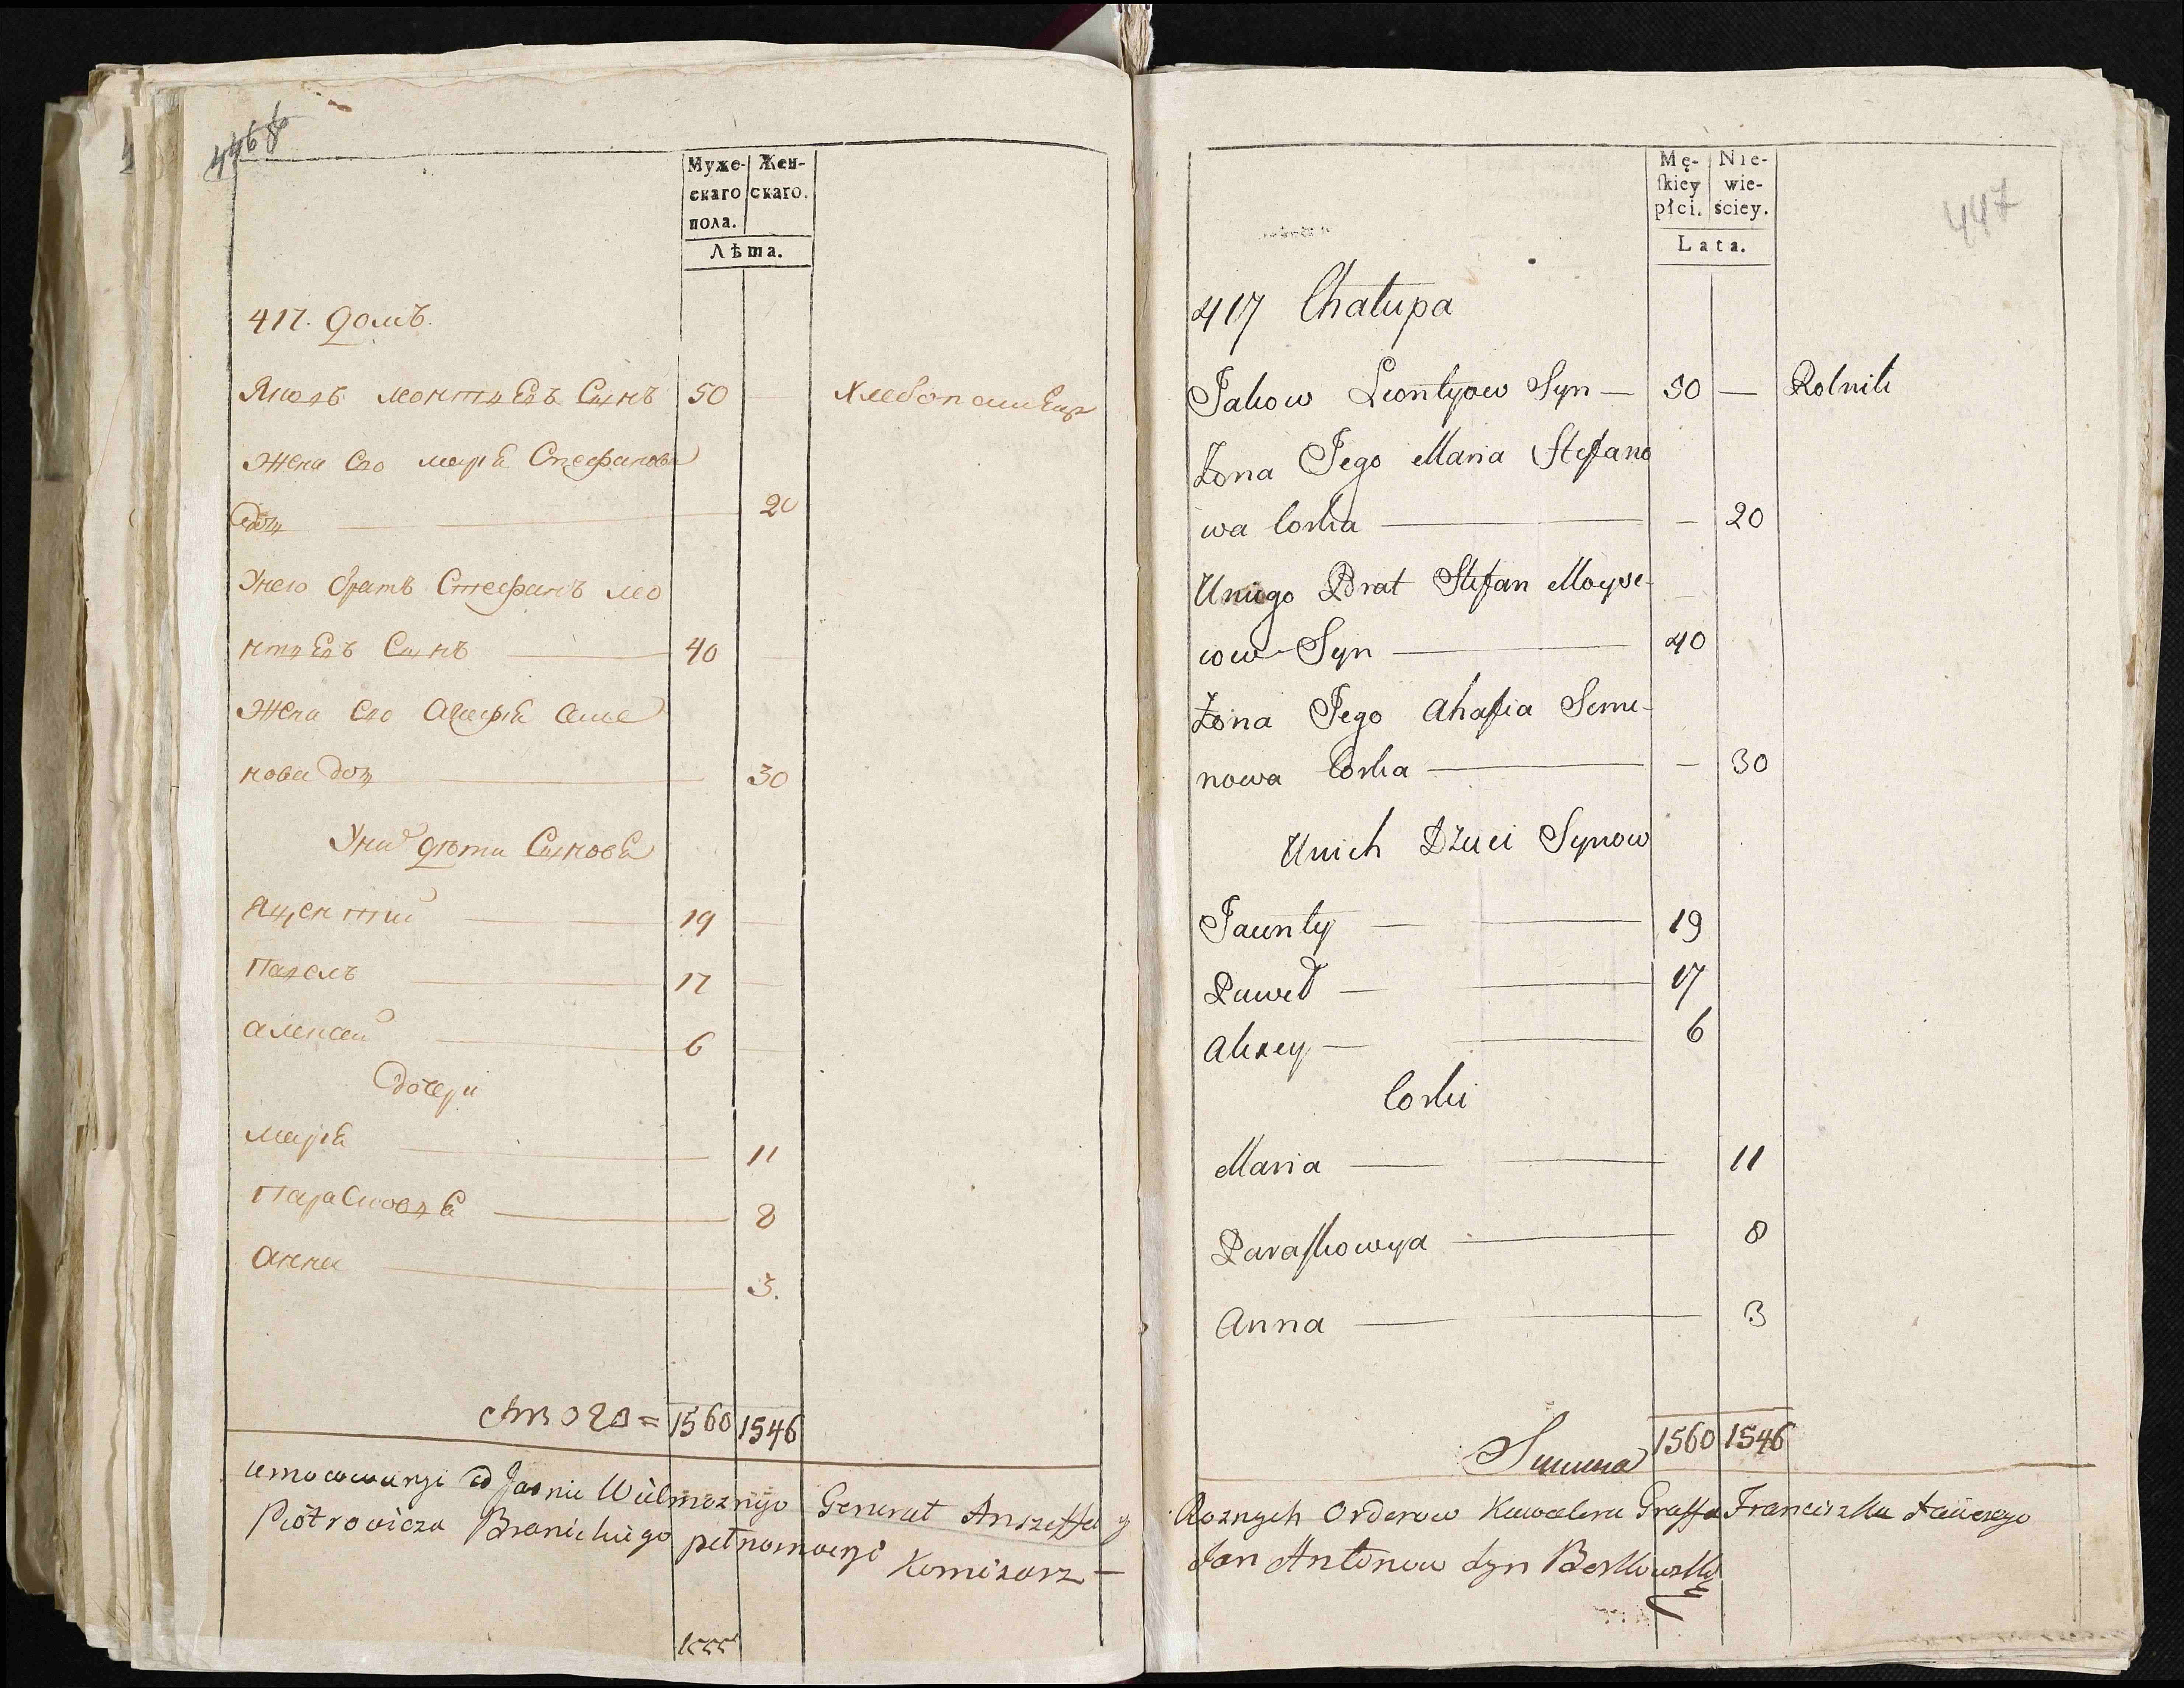 446
Муже-
скаго
пола.
Жен-
скаго.
Лѣта.
417. домъ.
Яковъ леонтиевъ Сынъ 50 — Хлебопашецъ
Жена Его марія Стефанова
дочь — 20
Унего братъ Стефанъ лео
нтиевъ Сынъ — 40 —
Жена Его Агафія Симе
нова дочь — 30
Уних дѣти Сыновя
Яцентий — 19 —
Павелъ — 17 —
алексей — 6 —
дочери
марія — 11
Парасковия — 8
анна — 3.
= 1560 1546
umocowanyi od Jasnie Wielmoznego Generał Anszeffa y
Piotrowicza Branickiego pełnomocnyi Komisarz —
447
Mę-
ſkiey
płci.
Nie-
wie-
ściey.
Lata.
417 Chałupa
Jakow Leontyow Syn — 50 — Rolnik
Żona Jego Maria Stefano
wa Corka — — 20
Uniego Brat Stefan Moyse-
iow Syn — 40
Żona Jego Ahafia Seme-
nowa Corka — — 30
Unich Dzieci Synow
Jacenty — — 19
Paweł — — 17
Alexey — — 6
Corki
Maria — — 11
Paraſkowya — 8
Anna — 3
Summa 1560 1546
Roznych Orderow Kawalera Graffa Franciszka Xawerego
Jan Antonow Syn